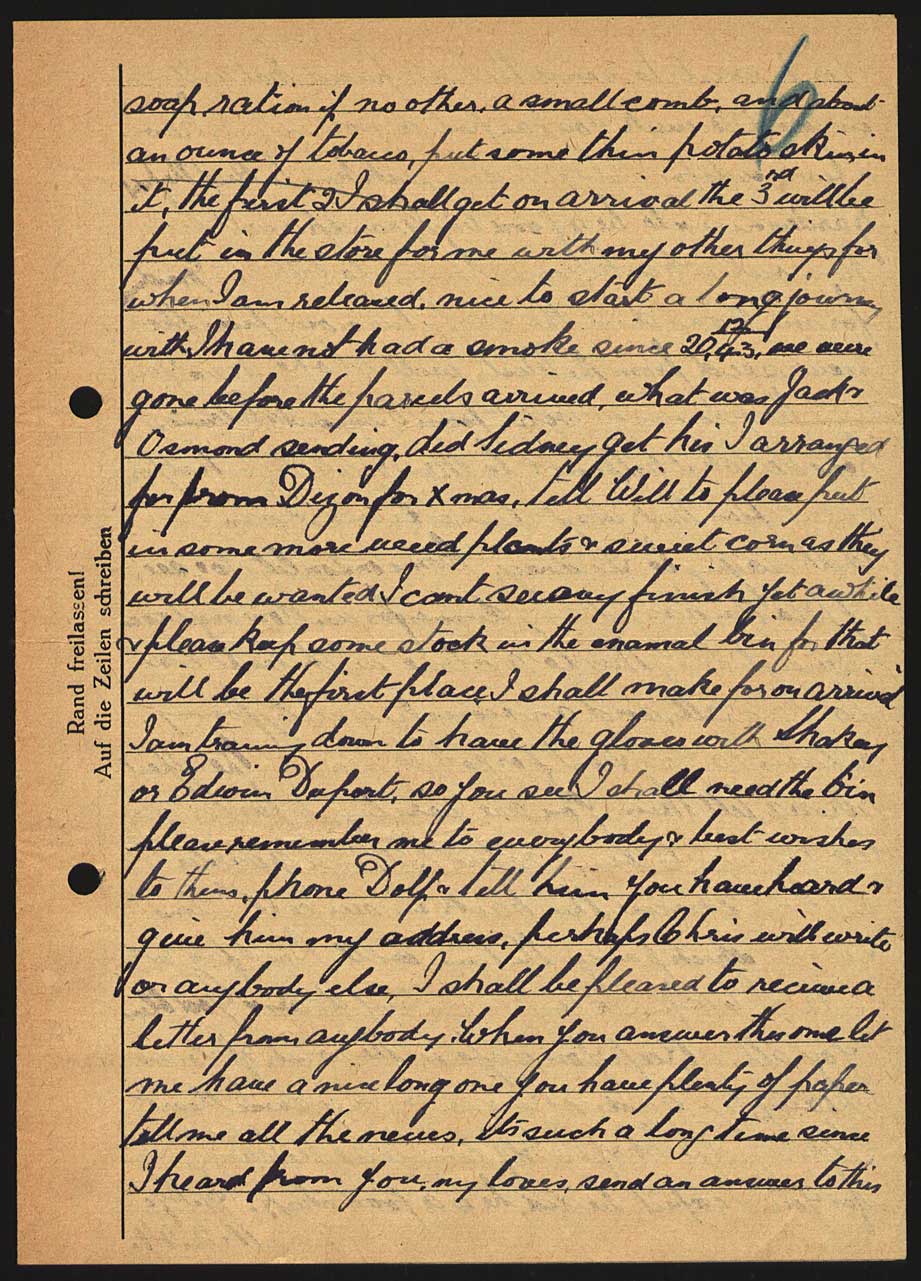 6
soap ration if no other, a small comb, and about
an ounce of tobacco, put some thin potato skins in
it, the first 2 I shall get on arrival the 3rd will be
put in the store for me with my other things for
when I am released, nice to start a long journey
with I have not had a smoke since 20.12.43, we were
gone before the parcels arrived, what was Jack &
Osmond sending, did Sidney get his I arranged
for from Dizon for Xmas, tell Will to please put
in some more weed plants & sweet corn as they
will be wanted I cant see any finish yet awhile
& please keep some stock in the enamal bin for that
will be the first place I shall make for on arrival
I am training down to have the gloves with Shakey
or Edwin Duport, so you see I shall need the bin
please remember me to everybody & best wishes
to them, phone Dolf & tell him you have heard &
give him my address, perhaps Chris will write
or anybody else, I shall be pleased to receive a
letter from anybody. When you answer this one let
me have a nice long one you have plenty of paper
tell me all the news, its such a long time since
I heard from you, my loves, send an answer to this
Rand freilassen!
Auf die Zeilen schreiben